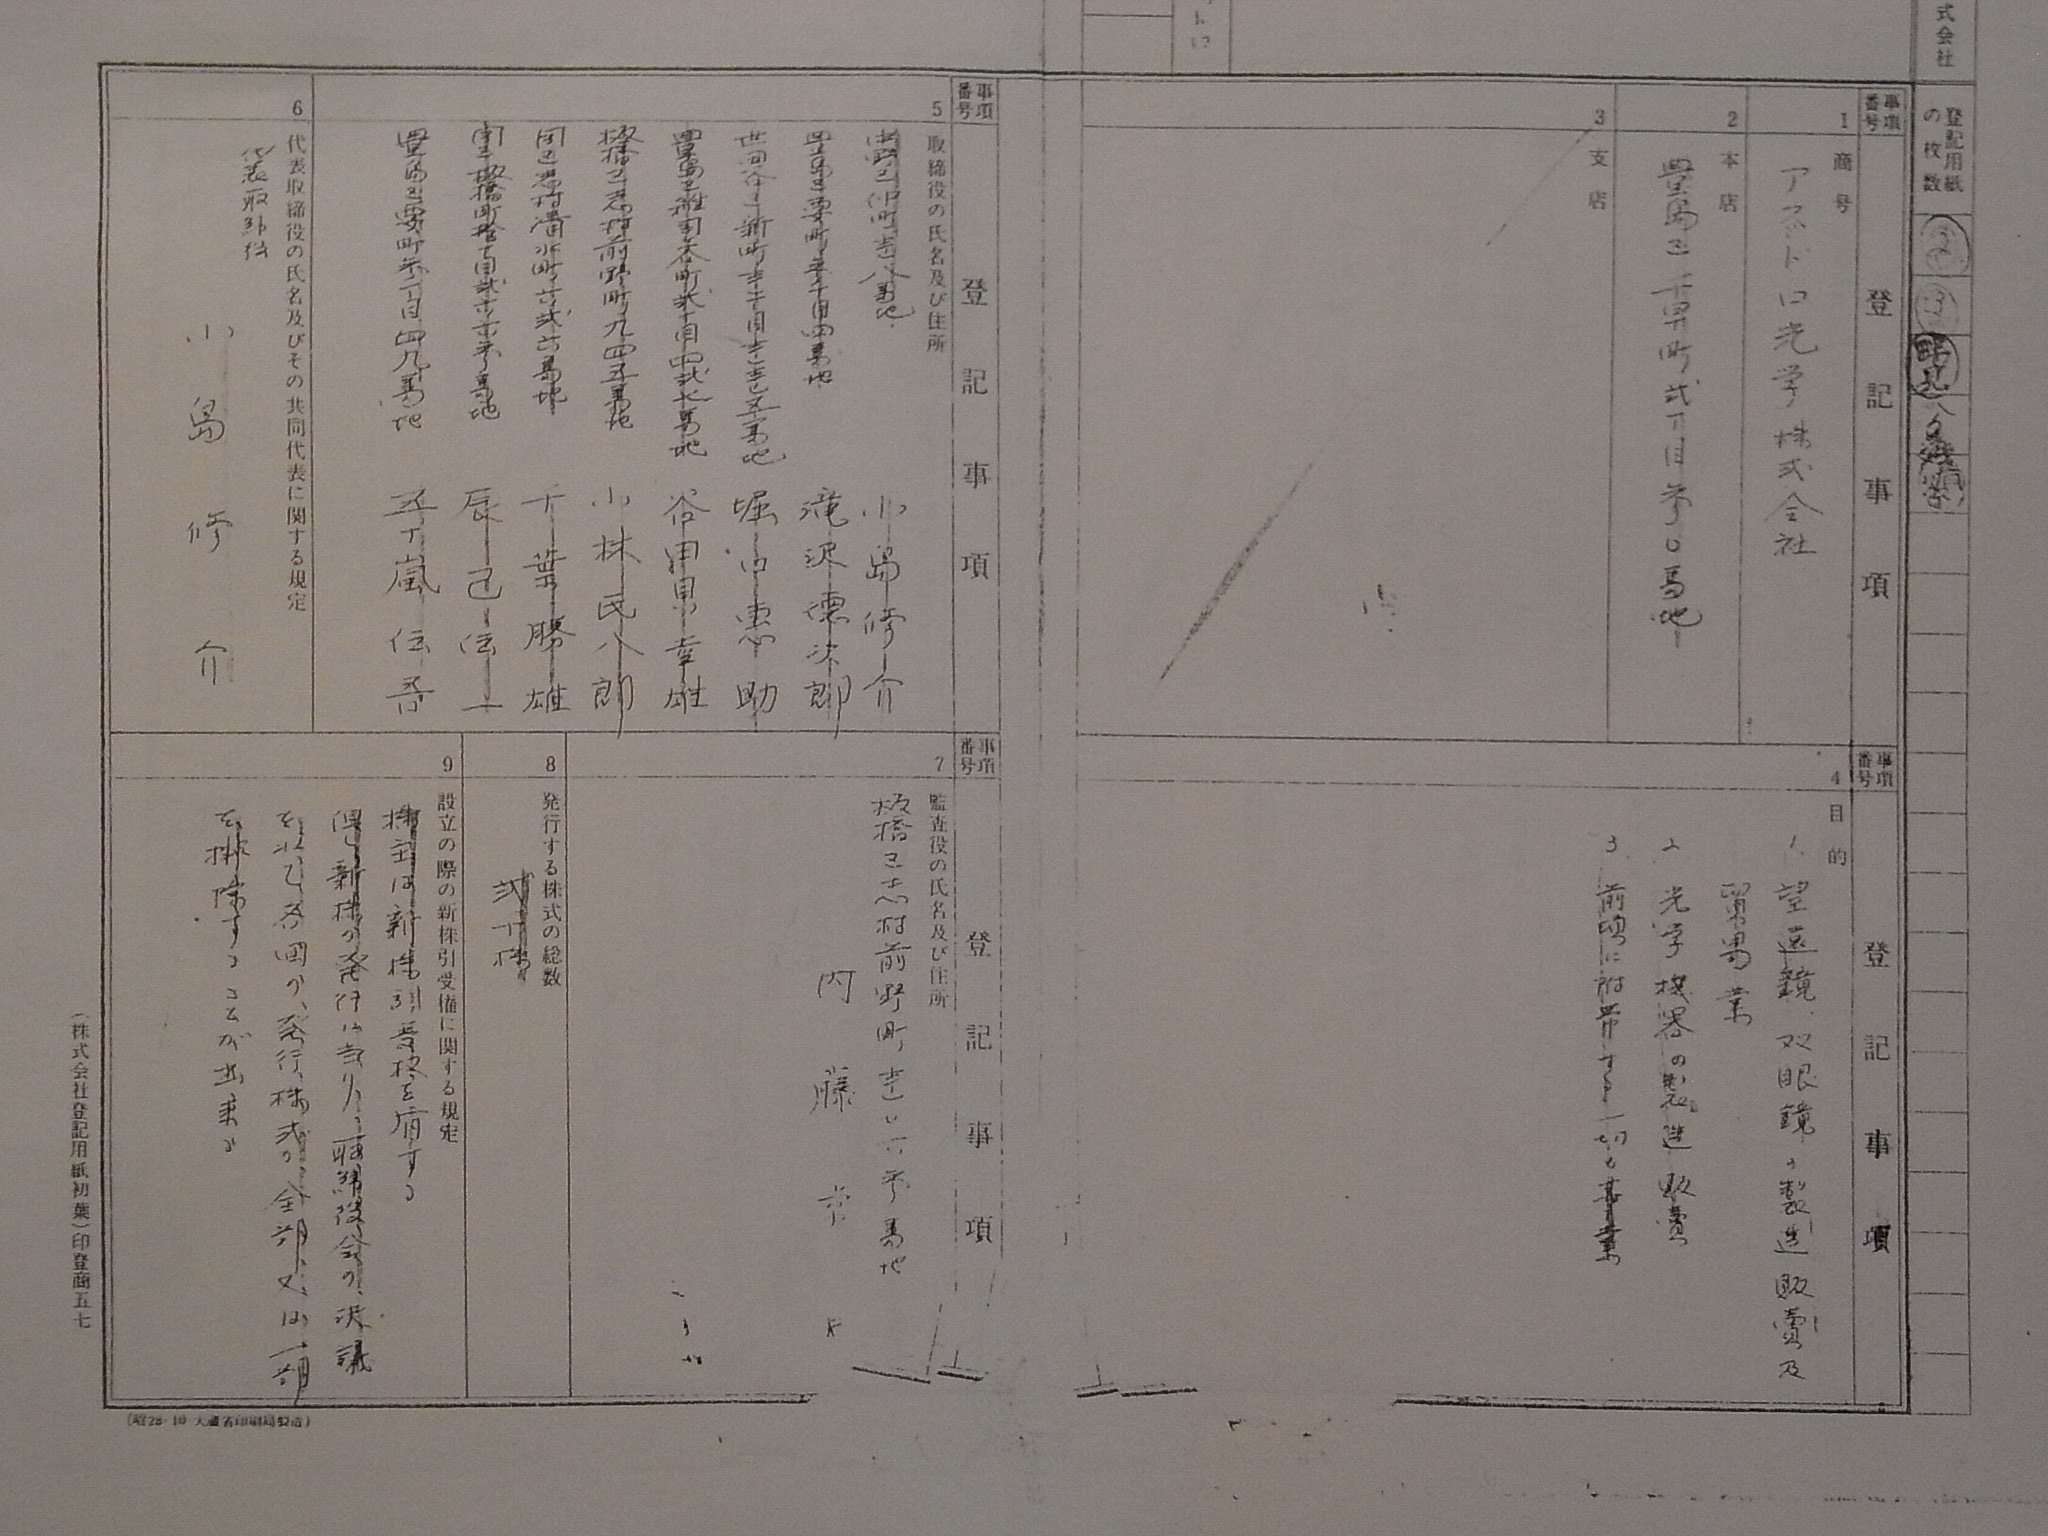 式会社
登記用紙の枚数
事項番号
登記事項
1
商号
アストロ光学株式会社
2
本店
豊島区千早町弐丁目参〇番地
3
支店
事項番号
登記事項
4
目的
1、望遠鏡、双眼鏡の製造販売及
貿易業
2 光学機器の製造販売
3、前項に附帯する一切の事業
事項番号
登記事項
5
取締役の氏名及び住所
小島修介
豊島区要町 番地 滝沢德次郎
世田谷区新町 番地 堀口恵助
豊島区雑司ヶ谷町 番地 幸雄
板橋区志村前野町九四五番地 小林民八郎
同区志村清水町 番地 千葉勝雄
同区板橋町 番地 辰己伝一
豊島区要町参丁目四九番地 五十嵐伝吾
6
代表取締役の氏名及びその共同代表に関する規定
代表取締役
小島修介
事項番号
登記事項
7
監査役の氏名及び住所
板橋区志村前野町壱〇六参番地
内藤
8
発行する株式の総数
弐千株
9
設立の際の新株引受権に関する規定
株主は新株引受権を有する
但し新株の発行に当り、取締役会の決議
を以て各回の発行株式の全部又は一部
を排除することが出来る
(株式会社登記用紙初葉)印登商五七
(昭28・10 大蔵省印刷局製造)